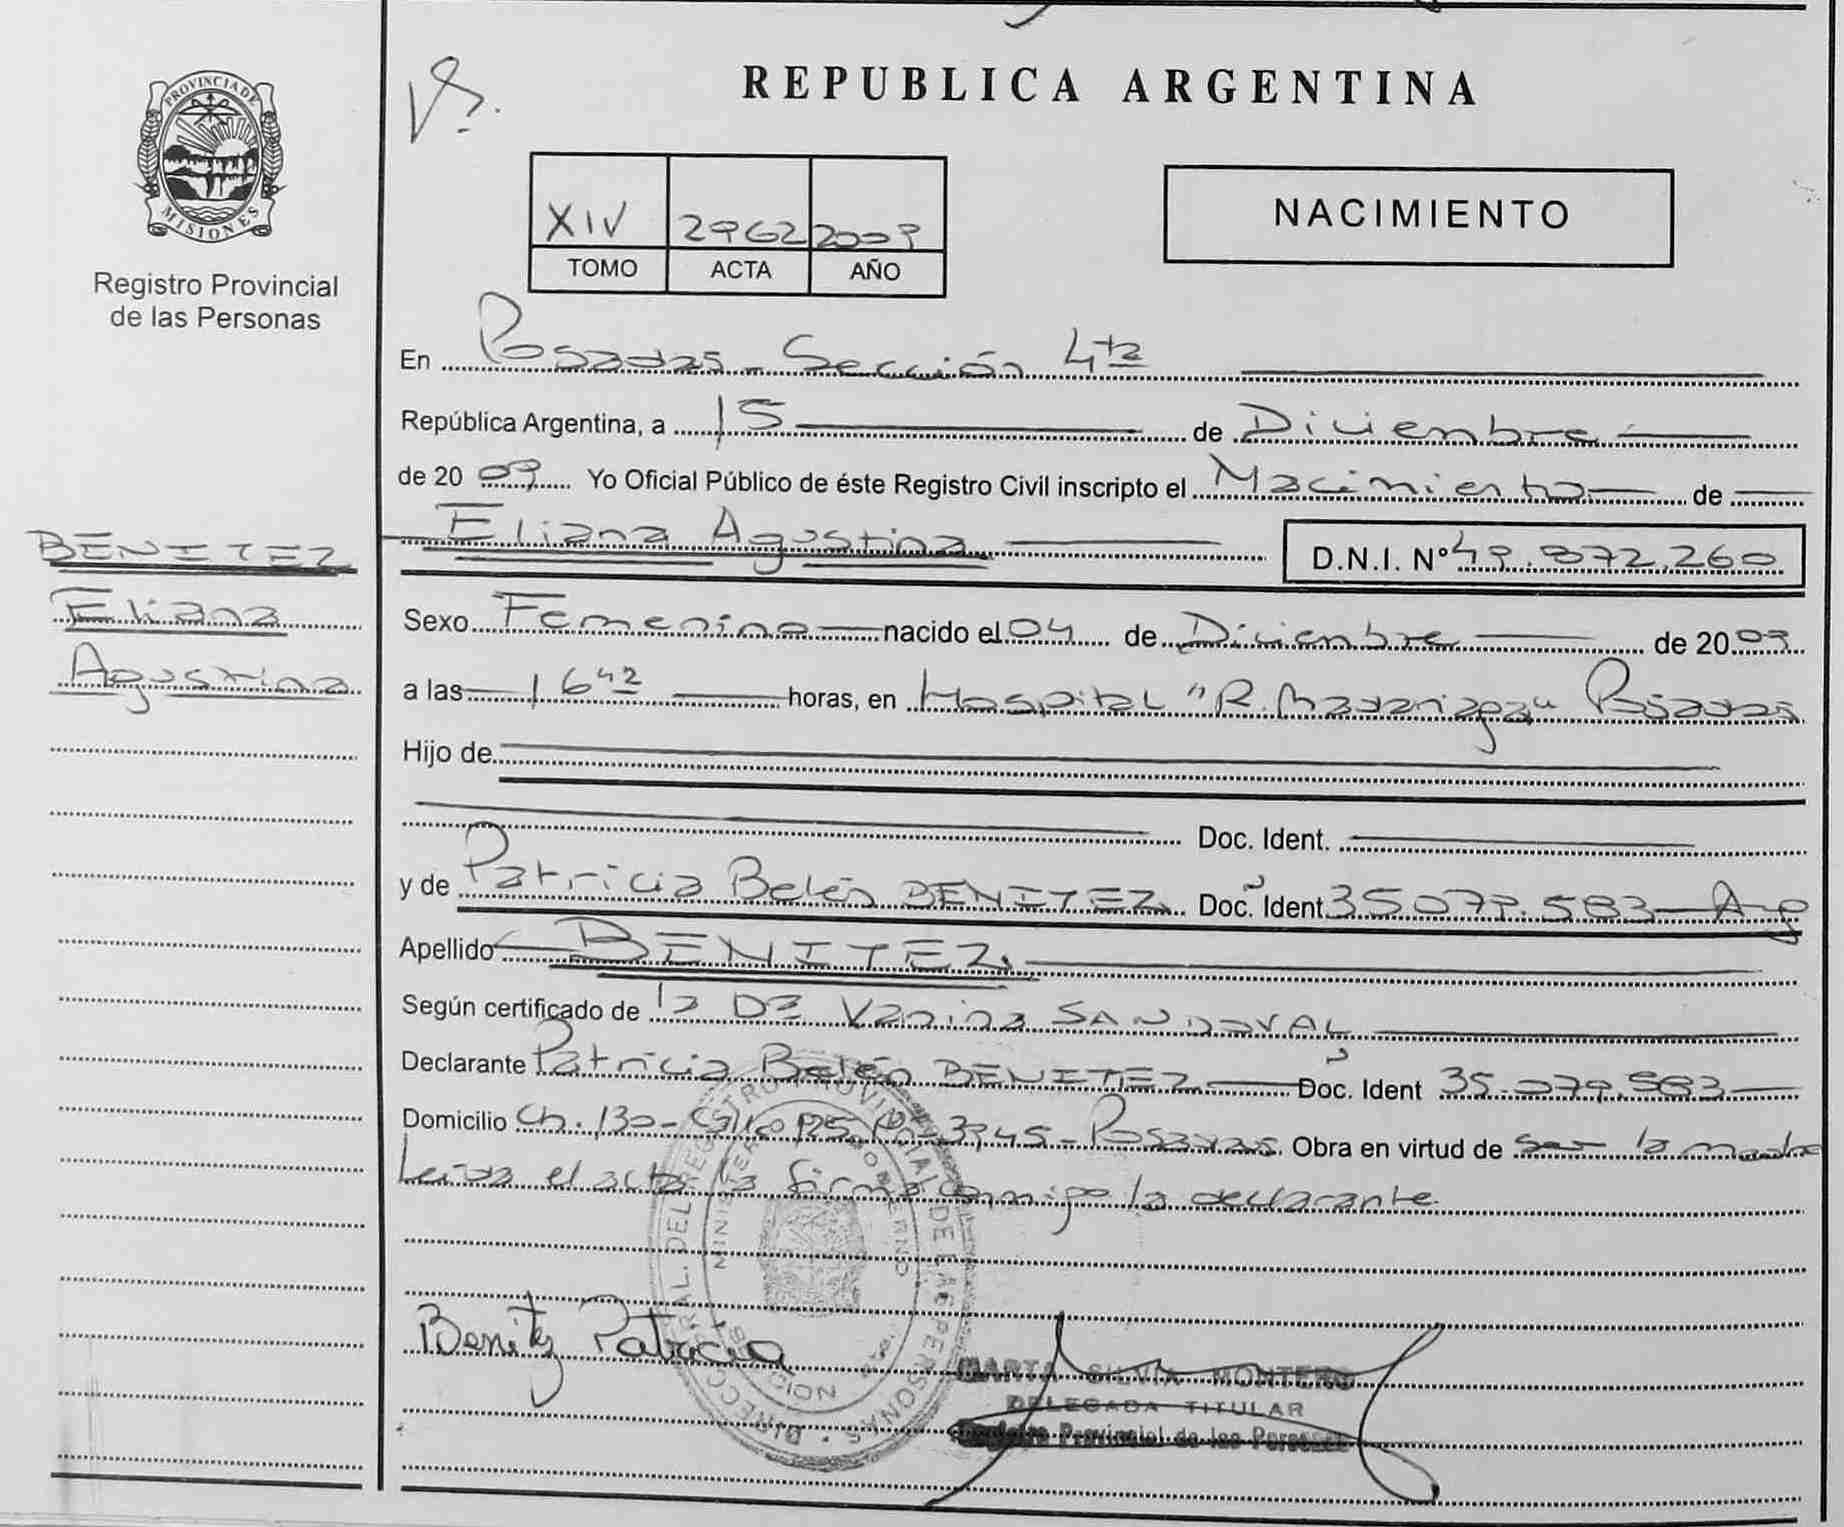 PROVINCIA DE
MISIONES
Registro Provincial
de las Personas
BENITEZ
Eliana
Agustina
REPUBLICA ARGENTINA
XIV 2962 2009
TOMO ACTA AÑO
NACIMIENTO
En Posadas - Sección 4ta
República Argentina, a 15 de Diciembre
de 2009 Yo Oficial Público de éste Registro Civil inscripto el Nacimiento de
Eliana Agustina D.N.I. Nº 49.872.260
Sexo Femenino nacido el 04 de Diciembre de 2009
a las 16 42 horas, en Hospital "R. Madariaga" Posadas
Hijo de
Doc. Ident.
y de Patricia Belén BENITEZ. Doc. Ident 35079.583 Arg
Apellido BENITEZ.
Según certificado de la Dra Vanina SANDOVAL
Declarante Patricia Belén BENITEZ Doc. Ident 35.079.583
Domicilio Ch. 130 - 3945 - Posadas. Obra en virtud de ser la madre
Leida el acta la firma conmigo la declarante
Benitez Patricia
MARTA SILVIA MONTERO
DELEGADA TITULAR
Registro Provincial de las Personas